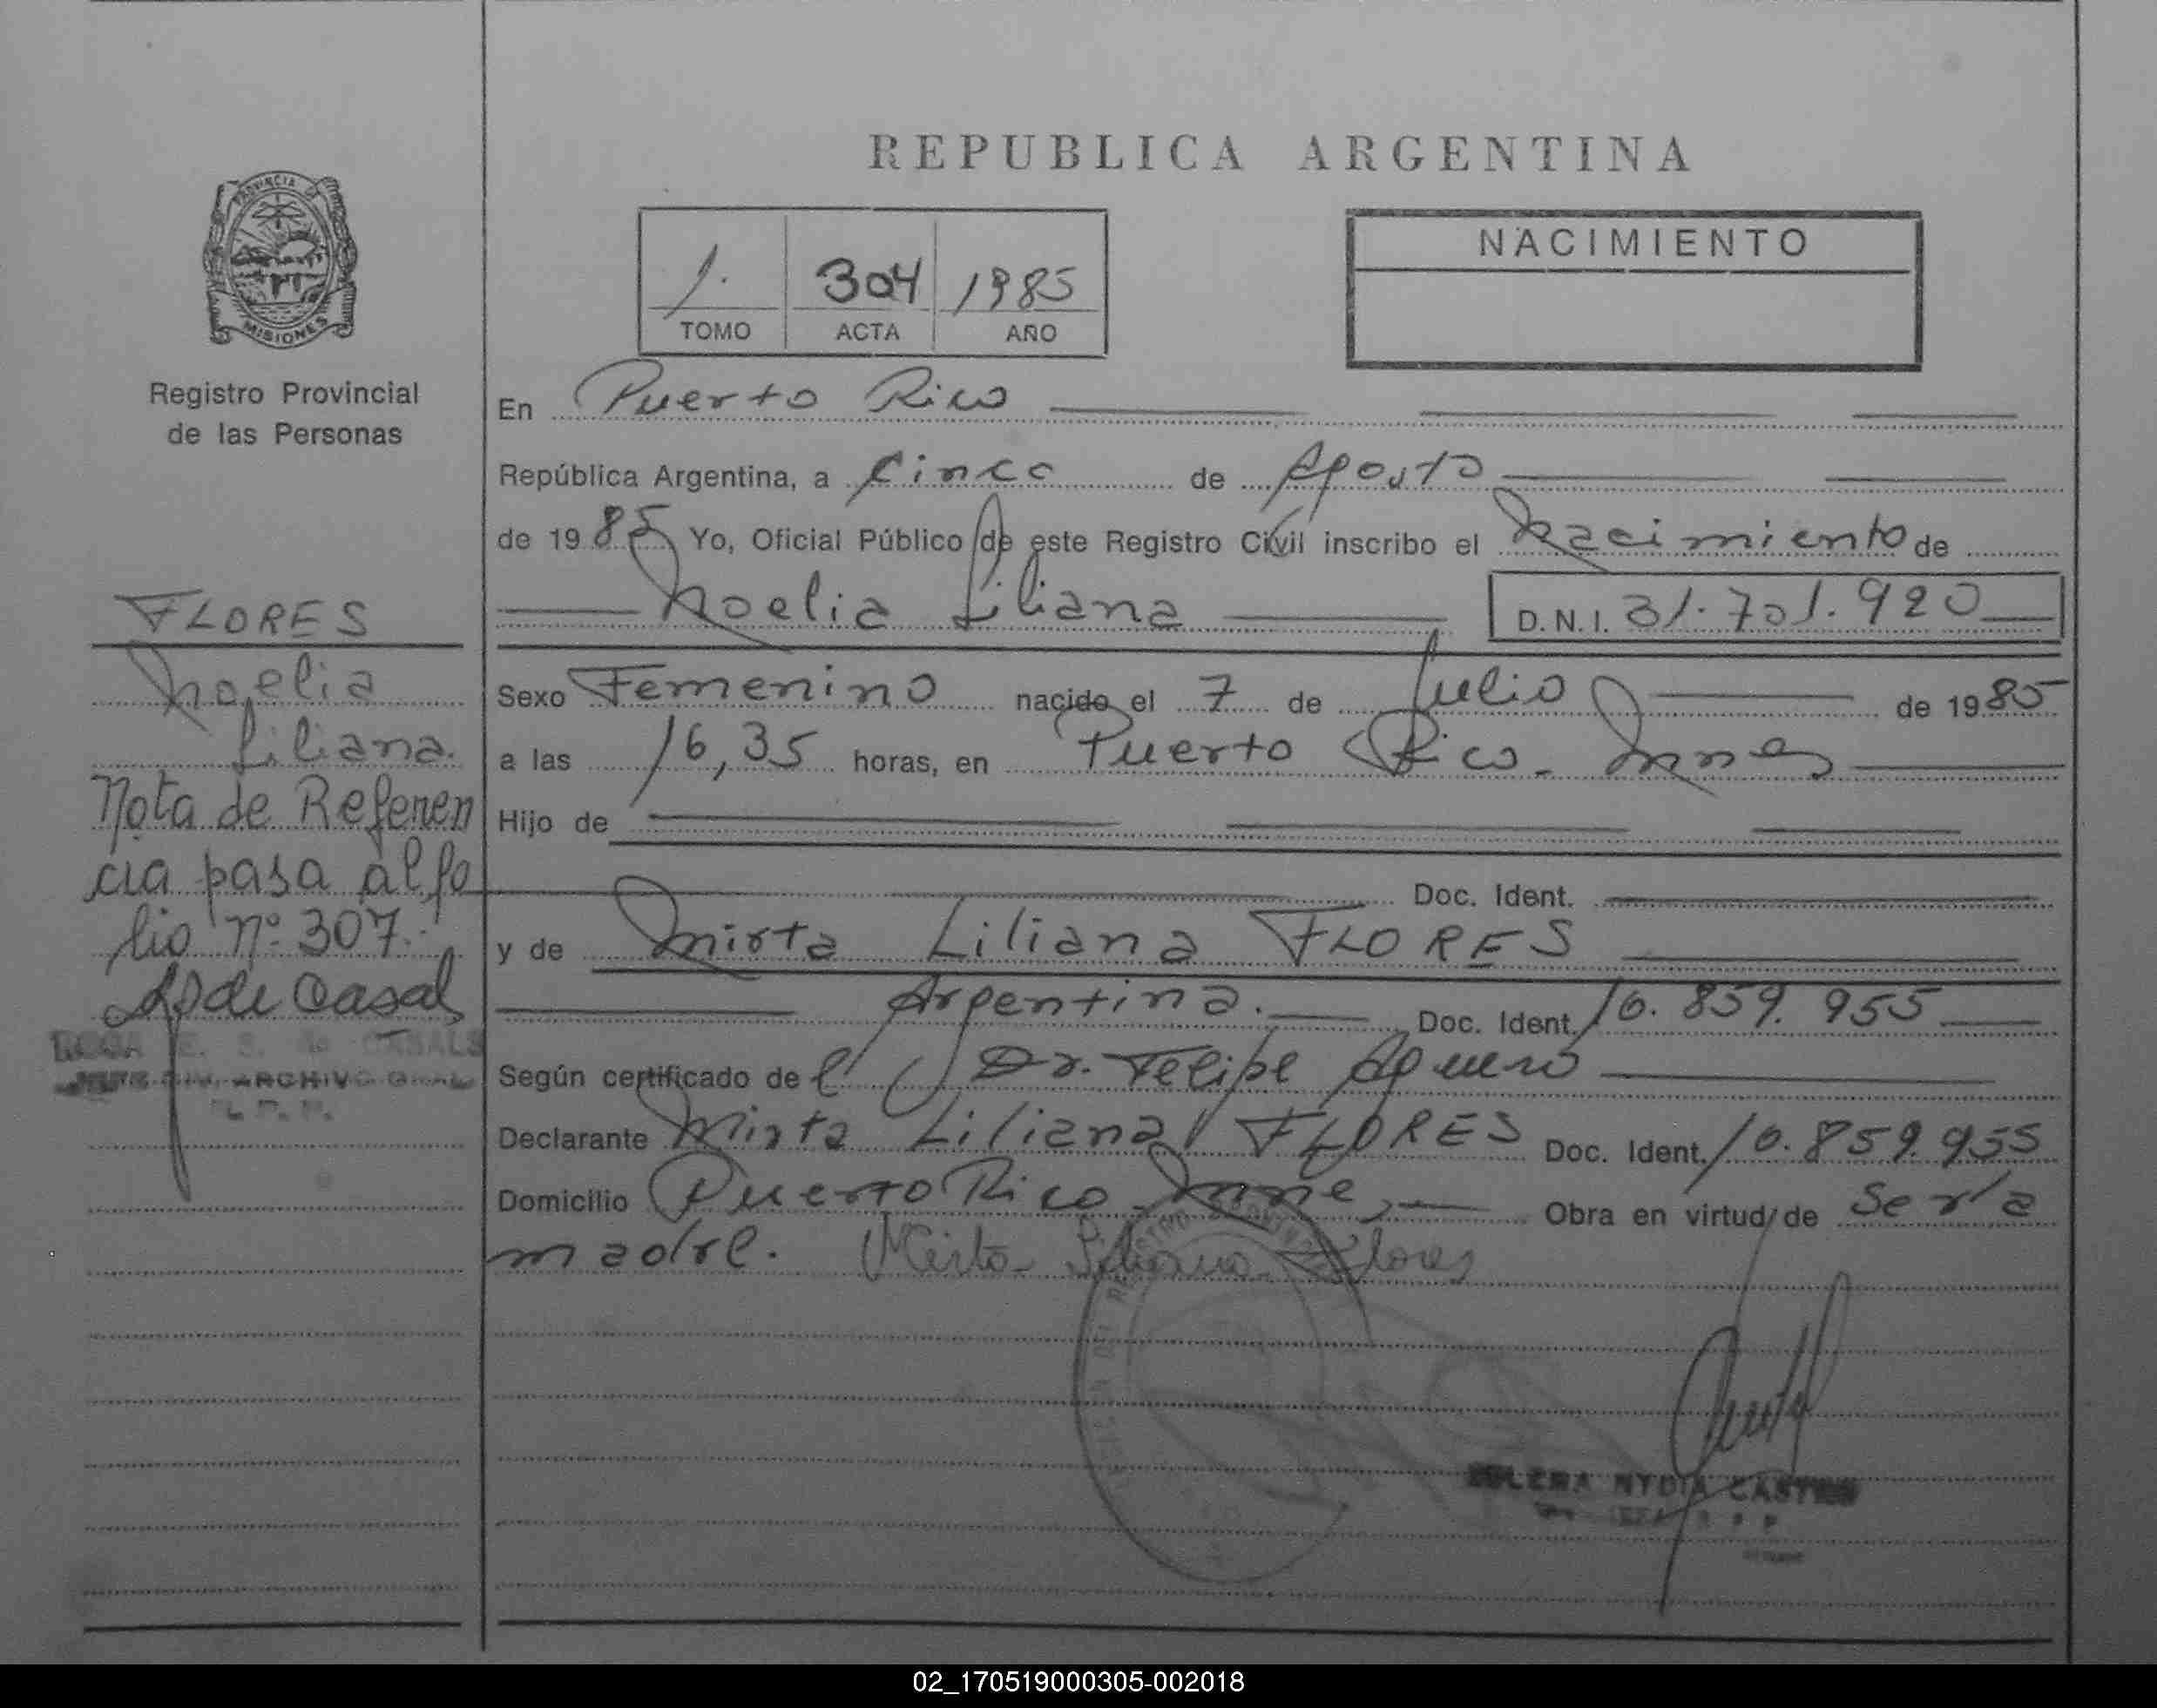 REPUBLICA ARGENTINA
PROVINCIA DE
MISIONES
Registro Provincial
de las Personas
1. 304 1985
TOMO ACTA AÑO
NACIMIENTO
En Puerto Rico
República Argentina, a Cinco de Agosto
de 1985 Yo, Oficial Público de este Registro Civil inscribo el Nacimiento de
Noelia Liliana D.N.I. 31.701.920
Sexo Femenino nacido el 7 de Julio de 1985
a las 16,35 horas, en Puerto Rico - Mnes
Hijo de
Doc. Ident.
y de Mirta Liliana FLORES
Argentina. Doc. Ident. 10.859.955
Según certificado del Dr. Felipe Aguero
Declarante Mirta Liliana FLORES Doc. Ident. 10.859.955
Domicilio Puerto Rico Mnes Obra en virtud de Ser la
madre. Mirta Liliana Flores
NYDIA
FLORES
Noelia
Liliana.
Nota de Referen
cia pasa al fo
lio nº 307.
de Casal
E. S. de CASALS
ARCHIVO GRAL
02_170519000305-002018